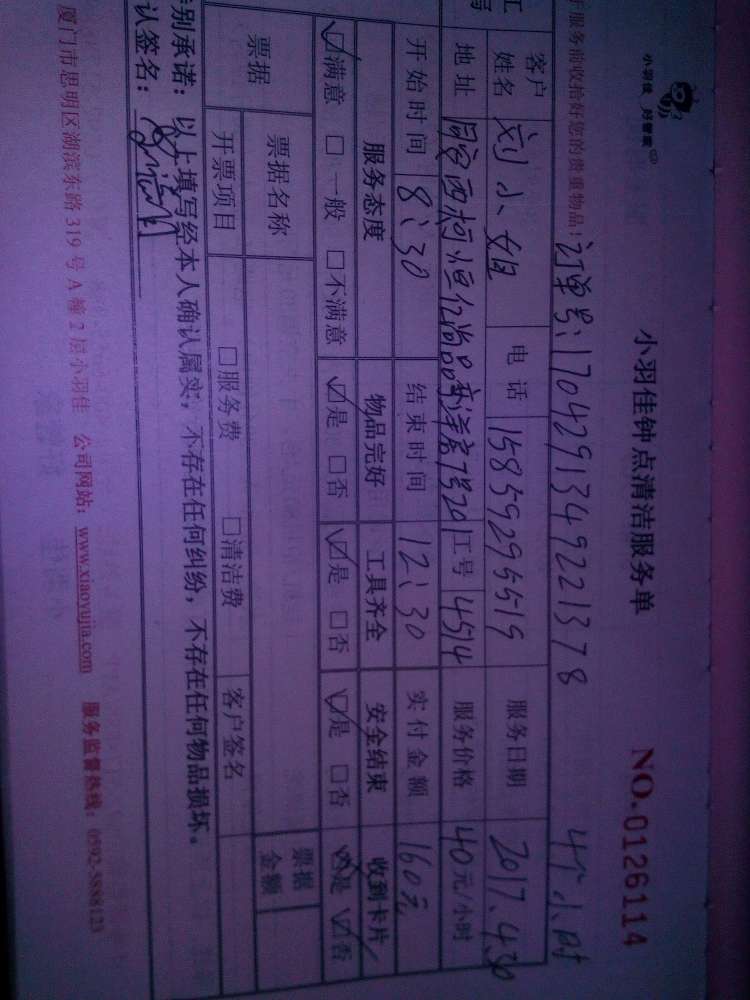 小羽佳 好管家
小羽佳钟点清洁服务单 NO.0126114
服务前收拾好您的贵重物品! 订单号:1704291349221378 4个小时
客户姓名 刘小姐 电话 15859295519 服务日期 2017.4.30
地址 同安西柯恒亿尚品 7号201 工号 4514 服务价格 40元/小时
开始时间 8:30 结束时间 12:30 实付金额 160元
服务态度 物品完好 工具齐全 安全结束 收到卡片
☑满意 □一般 □不满意 ☑是 □否 ☑是 □否 ☑是 □否 是 ☑否
票据 票据名称 票据金额
开票项目 □服务费 □清洁费 客户签名
特别承诺:以上填写经本人确认属实,不存在任何纠纷,不存在任何物品损坏。
认签名:
厦门市思明区湖滨东路319号A幢2层小羽佳 公司网站:www.xiaoyujia.com 服务监督热线:0592-5888123